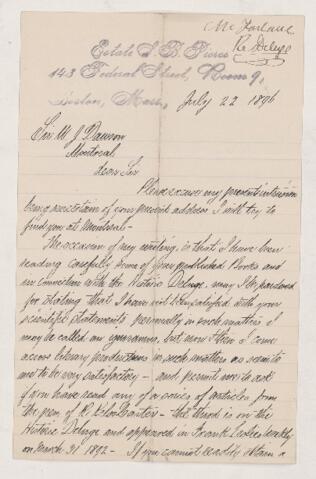 McFarlane
Re Deluge
Estate S. B. Pierce
143 Federal Street, Room 9,
Boston, Mass., July 22 1896
Sir W J Dawson
Montreal
Dear Sir
Please excuse my present intrusion
being uncertain of your present address I will try to
find you at Montreal -
The occasion of my writing, is that I have been
reading carefully some of your published Books and
in connection with the Historic Deluge, may I be pardoned
for stating that I am not satisfied with your
scientific statements personally in such matters I
may be called an ignoramus, but now & then I come
across literary productions in such matters as seem to
me to be very satisfactory - and permit me to ask
if you have read any of a series of articles from
the pen of R. - the third is on the
Historic Deluge and appeared in Frank Leslies Weekly
on March 31 1892 - If you cannot readily obtain a